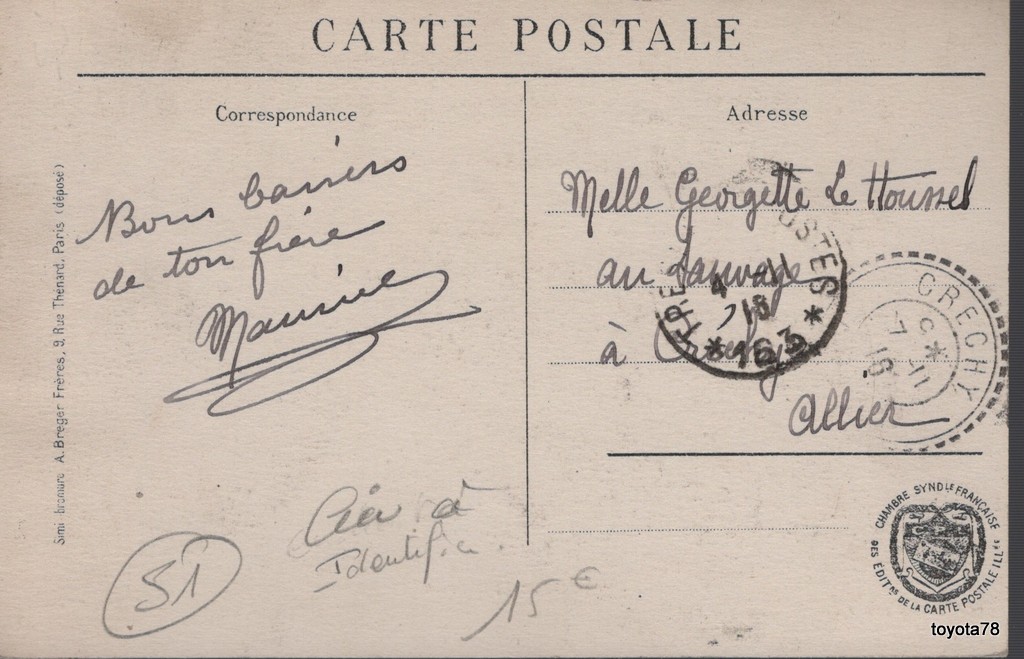 CARTE POSTALE
Correspondance
Adresse
Bons baisers
de ton frère
Maurice
Melle Georgette Le Houssel
au Sauvage
à Créchy
Allier
POSTES
4 - 11
15
* 163 *
CRECHY
7 - 11
15
Simi-bromure A. Breger Frères, 9, Rue Thénard, Paris (déposé)
51
à
Identifier
15 €
CHAMBRE SYNDLE FRANÇAISE
DES ÉDITRS DE LA CARTE POSTALE ILLÉE
toyota78